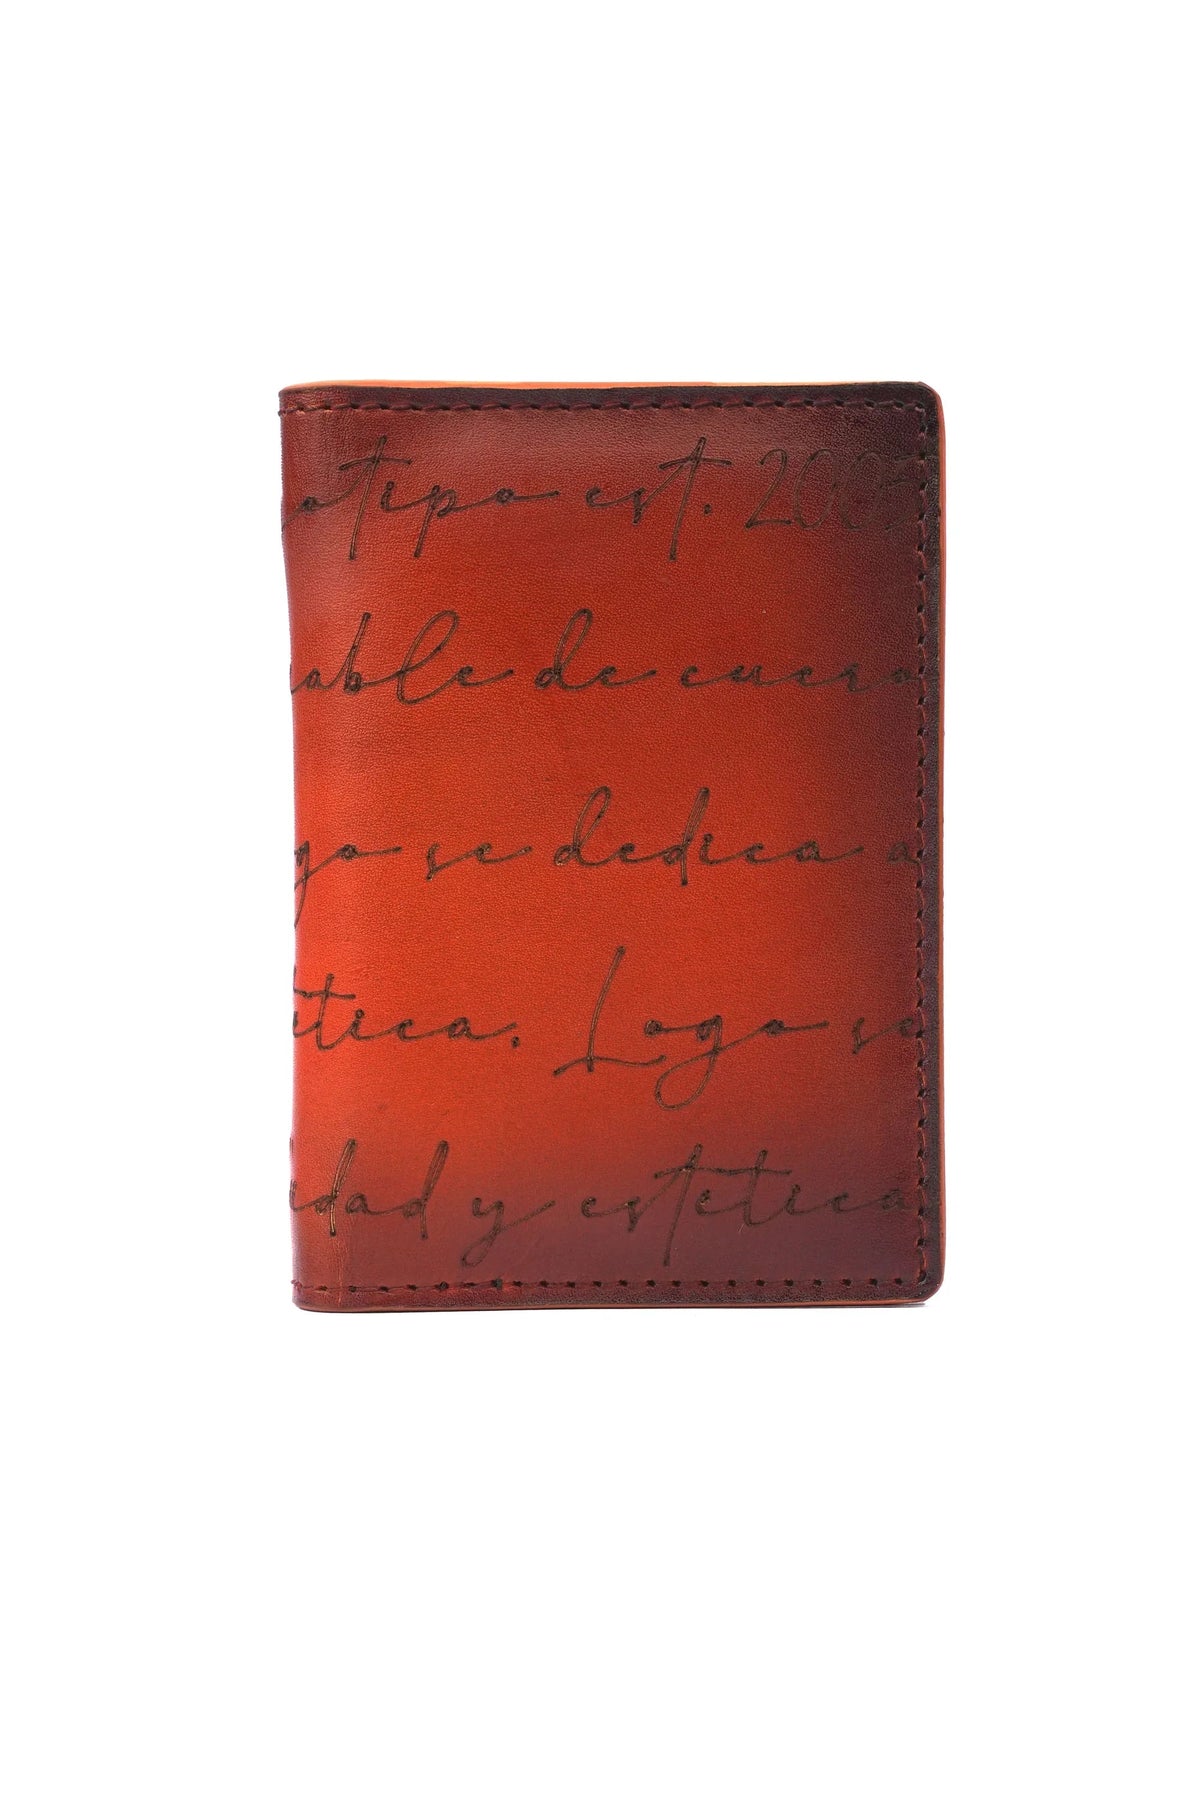 otipo est. 2005
able de cuero
go se dedica a
tetica. Logo se
idad y estetica